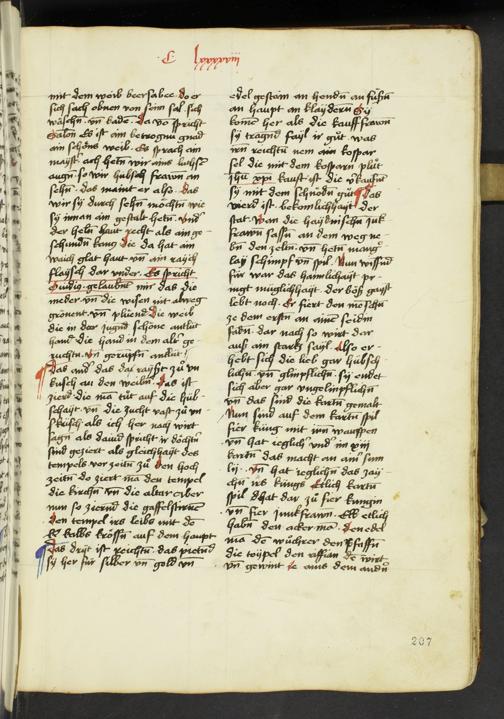 mit dem weib beersabee do er
sich sach obnen von seim sal sich
wäschn vn baden da vo spricht
Salon Es ist ain betrogne gnad
ain schöns weib Es sprach ain
maist ach hetn wir ains luchsz
augn so wir hübsch frawn an
sehn das maint er also das
wir sy durch sehn möchtn wie
sy innan ain gestalt hetn vnd
der heln haut recht als ain ge
schundn kung die da hat ain
waich glat haut vn ain raych
flaysch dar vnder Es spricht
Ouidig gelaubnt mir das die
nieder vn die wisen nit alweg
grönent vn pliend die weib
die in der jugnd schöne antlut
hand die hand in dem alt ge
ruchtn vn gerupfn antlut
das and das da rayszt zu vn
kusch an den weibn das ist
zierd die ma tut auf die hüb
schayt vn die zucht vast zu vn
kusch als ich her nach wirt
sagn als dauid spricht ir döchtn
sind geziert als gleichhayt des
tempels vor zeitn zu den hoch
zeitn do ziert ma den tempel
die kirchn vn die altar aber
nun so zierend die
den tempel irs leibs mit de
auf dem haupt
das dryt ist reichtu das
sy her für silber vn gold vn
edel gestain an hendn an füssn
an haupt an klaydern Sy
komen her als die kauff frawn
sy tragnd fayl ir gut was
vn reichtu nem ain kospar
sel die mit dem kosparn plut
jhu xpi kauft ist die vkaufn
sy mit dem schnödn gut das
vierd ist bekomlichhayt der
stat wan die haydnischn juk
frawn sassn an dem weg ne
bn den zeltn vn hetn mang
lay schimpf vn spil Nun wissnd
für war das haimlichayt pr
ingt müglichhayt der bösz gayst
lebt noch Er fiert den menschn
ze dem erstn an aime seidin
fadn dar nach so wirt dar
ausz ain starks sayl Also er
hebt sich die lieb gar hübsch
lichn vn glimpflichn sy endet
sich aber gar vngelimpflichn
vn das sind die kartn gemalt
Nun sind auf dem kartn spil
fier king mit irn wauffpen
vn hat ieglich vnd im xiij
kartn das macht an ain sum
lij vn hat ieglichn das zay
chn irs kungs Etlich kartn
spil dhat dar zu fier kungin
vn fier junkfrawn Etlich
habn den ackerma den edel
ma den wuchrer den pfaffn
die toypel den riffian de wirt
vn gewint ie ains dem andn
207